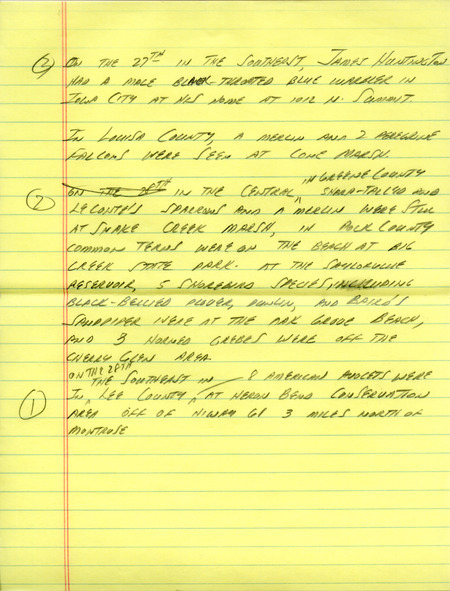 (2) ON THE 27TH IN THE SOUTHEAST, JAMES HUNTINGTON
HAD A MALE BLACK-THROATED BLUE WARBLER IN
IOWA CITY AT HIS HOME AT 1012 N. SUMMIT.
IN LOUISA COUNTY, A MERLIN AND 2 PEREGRINE
FALCONS WERE SEEN AT CONE MARSH.
IN GREENE COUNTY
(2) ON THE 28TH IN THE CENTRAL, SHARP-TAILED AND
LECONTE'S SPARROWS AND A MERLIN WERE STILL
AT SNAKE CREEK MARSH, IN POLK COUNTY
COMMON TERNS WERE ON THE BEACH AT BIG
CREEK STATE PARK. AT THE SAYLORVILLE
RESERVOIR, 5 SHOREBIRD SPECIES, INCLUDING
BLACK-BELLIED PLOVER, DUNLIN, AND BAIRD'S
SANDPIPER WERE AT THE OAK GROVE BEACH,
AND 3 HORNED GREBES WERE OFF THE
CHERRY GLEN AREA
ON THE 28TH
THE SOUTHEAST IN 8 AMERICAN AVOCETS WERE
(1) IN LEE COUNTY, AT HERON BEND CONSERVATION
AREA OFF OF HIWAY 61 3 MILES NORTH OF
MONTROSE